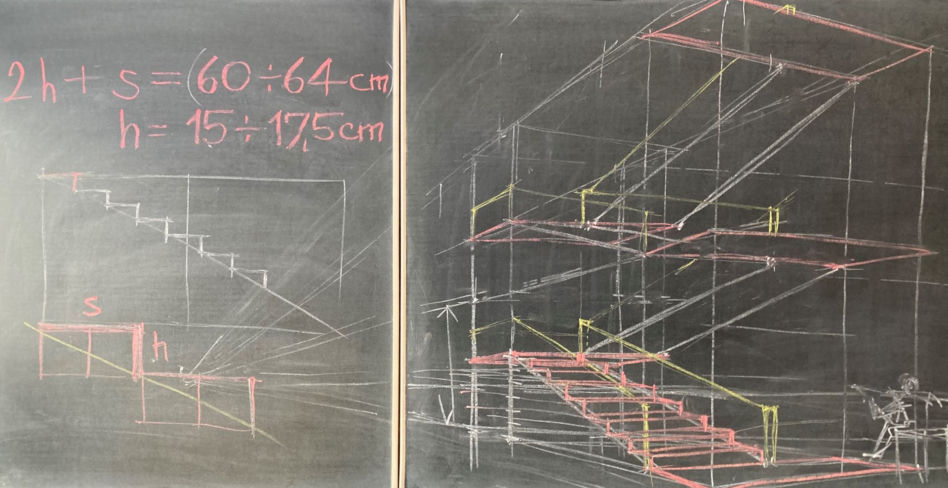 2h + s = (60÷64 cm)
h = 15÷17,5cm
s
h